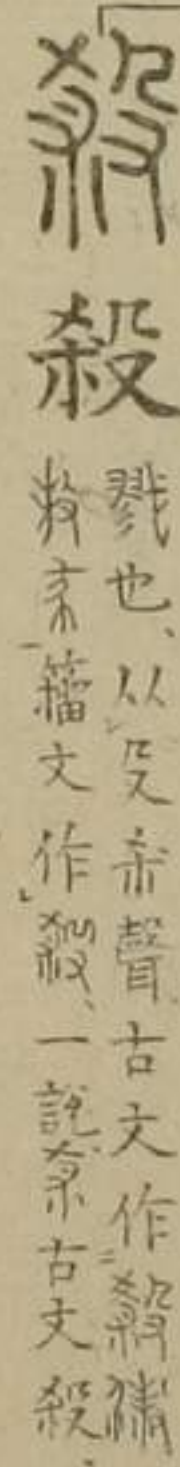 殺
殺
戮也、从殳杀聲古文作
籀文作一說杀古文殺